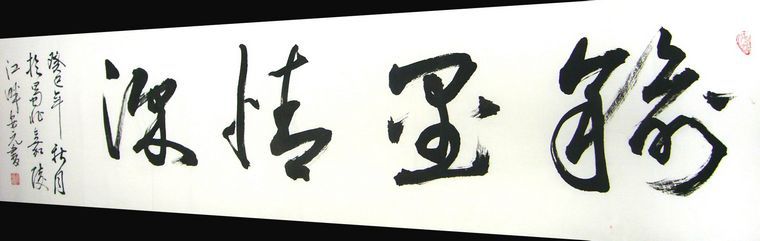 翰墨情深
癸巳年秋月
於蜀北嘉陵
江畔